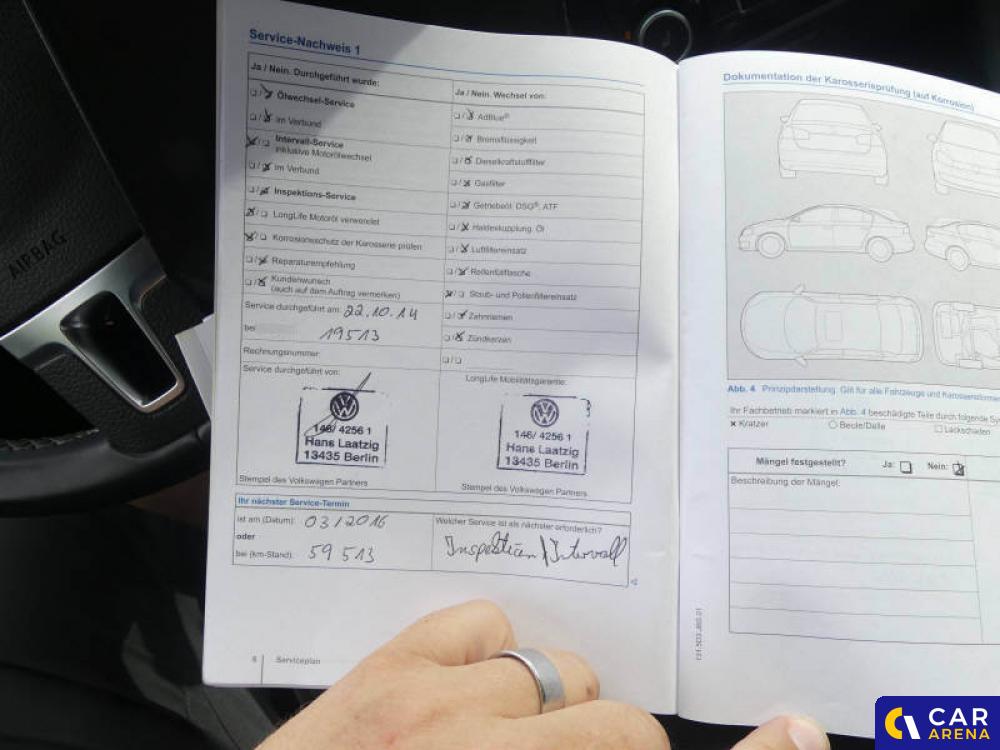 Service-Nachweis 1
Ja / Nein. Durchgeführt wurde:
Ölwechsel-Service
im Verbund
Intervall-Service
inklusive Motorölwechsel
im Verbund
Inspektions-Service
LongLife Motoröl verwendet
Korrosionsschutz der Karosserie prüfen
Reparaturempfehlung
Kundenwunsch
(auch auf dem Auftrag vermerken)
Service durchgeführt am: 22.10.14
bei 19513
Rechnungsnummer:
Service durchgeführt von:
146/ 4256 1
Hans Laatzig
13435 Berlin
Stempel des Volkswagen Partners
Ja / Nein. Wechsel von:
AdBlue®
Bremsflüssigkeit
Dieselkraftstofffilter
Gasfilter
Getriebeöl: DSG®, ATF
Haldexkupplung: Öl
Luftfiltereinsatz
Reifenfüllflasche
Staub- und Pollenfiltereinsatz
Zahnriemen
Zündkerzen
LongLife Mobilitätsgarantie:
146/ 4256 1
Hans Laatzig
13435 Berlin
Stempel des Volkswagen Partners
Ihr nächster Service-Termin
ist am (Datum): 03/2016
oder
bei (km-Stand): 59 513
Welcher Service ist als nächster erforderlich?
Inspektion/Intervall
6 Serviceplan
Dokumentation der Karosserieprüfung (auf Korrosion)
Abb. 4 Prinzipdarstellung: Gilt für alle Fahrzeuge und
Ihr Fachbetrieb markiert in Abb. 4 beschädigte Teile durch folgende
x Kratzer
Beule/Delle
Lackschaden
Mängel festgestellt? Ja: Nein:
Beschreibung der Mängel:
AIRBAG
CAR
ARENA